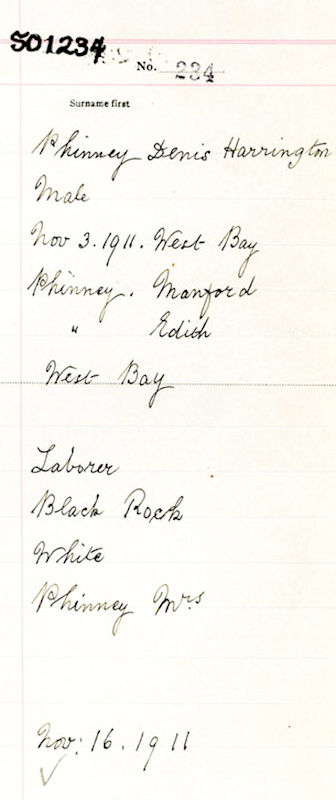 S01234
No. 234
Surname first
Phinney Denis Harrington
Male
Nov 3. 1911. West Bay
Phinney. Manford
" Edith
West Bay
Laborer
Black Rock
White
Phinney Mrs
Nov. 16. 1911